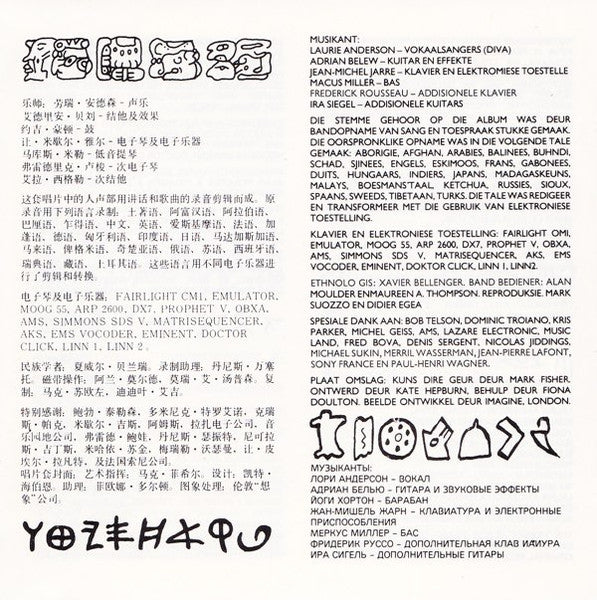 乐师：劳瑞·安德森－声乐
艾德里安·贝刘－结他及效果
约吉·豪顿－鼓
让·米歇尔·雅尔－电子琴及电子乐器
马库斯·米勒－低音提琴
弗雷德里克·卢梭－次电子琴
艾拉·西格勒－次结他
这套唱片中的人声部用讲话和歌曲的录音剪辑而成。原
录音用下列语言录制：土著语、阿富汉语、阿拉伯语、
巴厘语、乍得语、中文、英语、爱斯基摩语、法语、加
蓬语、德语、匈牙利语、印度语、日语、马达加斯加语、
马来语、俾格米语、奇楚亚语、俄语、苏语、西班牙语、
瑞典语、藏语、土耳其语。这些语言用不同电子乐器进
行了剪辑和转换。
电子琴及电子乐器：FAIRLIGHT CM1, EMULATOR,
MOOG 55, ARP 2600, DX7, PROPHET V, OBXA,
AMS, SIMMONS SDS V, MATRISEQUENCER,
AKS, EMS VOCODER, EMINENT, DOCTOR
CLICK, LINN 1, LINN 2。
民族学者：夏威尔·贝兰瑞。录制助理：丹尼斯·万塞
托。磁带操作：阿兰·莫尔德，莫瑞·艾·汤普森。复
制：马克·苏欧左，迪迪叶·艾吉。
特别感谢：鲍勃·泰勒森，多米尼克·特罗艾诺，克瑞
斯·帕克，米歇尔·吉斯，阿姆斯，拉扎电子公司，音
乐园地公司，弗雷德·鲍娃，丹尼斯·瑟振特，尼可拉
斯·吉丁斯，米哈依·苏金，梅瑞勒·沃瑟曼，让·皮
埃尔·拉凡特，及法国索尼公司。
唱片套封面：艺术指挥：马克·菲希尔。设计：凯特·
海伯恩。助理：菲欧娜·多尔顿。图象处理：伦敦“想
象”公司。
MUSIKANT:
LAURIE ANDERSON – VOKAALSANGERS (DIVA)
ADRIAN BELEW – KUITAR EN EFFEKTE
JEAN-MICHEL JARRE – KLAVIER EN ELEKTROMIESE TOESTELLE
MACUS MILLER – BAS
FREDERICK ROUSSEAU – ADDISIONELE KLAVIER
IRA SIEGEL – ADDISIONELE KUITARS
DIE STEMME GEHOOR OP DIE ALBUM WAS DEUR
BANDOPNAME VAN SANG EN TOESPRAAK STUKKE GEMAAK.
DIE OORSPRONKLIKE OPNAME WAS IN DIE VOLGENDE TALE
GEMAAK: ABORIGIE, AFGHAN, ARABIES, BALINEES, BUHNDI,
SCHAD, SJINEES, ENGELS, ESKIMOOS, FRANS, GABONEES,
DUITS, HUNGAARS, INDIERS, JAPANS, MADAGASKEUNS,
MALAYS, BOESMANSTAAL, KETCHUA, RUSSIES, SIOUX,
SPAANS, SWEEDS, TIBETAAN, TURKS. DIE TALE WAS REDIGEER
EN TRANSFORMEER MET DIE GEBRUIK VAN ELEKTRONIESE
TOESTELLING.
KLAVIER EN ELEKTRONIESE TOESTELLING: FAIRLIGHT OMI,
EMULATOR, MOOG 55, ARP 2600, DX7, PROPHET V, OBXA,
AMS, SIMMONS SDS V, MATRISEQUENCER, AKS, EMS
VOCODER, EMINENT, DOKTOR CLICK, LINN 1, LINN2.
ETHNOLO GIS: XAVIER BELLENGER. BAND BEDIENER: ALAN
MOULDER ENMAUREEN A. THOMPSON. REPRODUKSIE. MARK
SUOZZO EN DIDIER EGEA
SPESIALE DANK AAN: BOB TELSON, DOMINIC TROIANO, KRIS
PARKER, MICHEL GEISS, AMS, LAZARE ELECTRONIC, MUSIC
LAND, FRED BOVA, DENIS SERGENT, NICOLAS JIDDINGS,
MICHAEL SUKIN, MERRIL WASSERMAN, JEAN-PIERRE LAFONT,
SONY FRANCE EN PAUL-HENRI WAGNER.
PLAAT OMSLAG: KUNS DIRE GEUR DEUR MARK FISHER.
ONTWERD DEUR KATE HEPBURN, BEHULP DEUR FIONA
DOULTON. BEELDE ONTWIKKEL DEUR IMAGINE, LONDON.
МУЗЫКАНТЫ:
ЛОРИ АНДЕРСОН – ВОКАЛ
АДРИАН БЕЛЬЮ – ГИТАРА И ЗВУКОВЫЕ ЭФФЕКТЫ
ЙОГИ ХОРТОН – БАРАБАН
ЖАН-МИШЕЛЬ ЖАРН – КЛАВИАТУРА И ЭЛЕКТРОННЫЕ
ПРИСПОСОБЛЕНИЯ
МЕРКУС МИЛЛЕР – БАС
ФРИДЕРИК РУССО – ДОПОЛНИТЕЛЬНАЯ КЛАВ ИАИУРА
ИРА СИГЕЛЬ – ДОПОЛНИТЕЛЬНЫЕ ГИТАРЫ